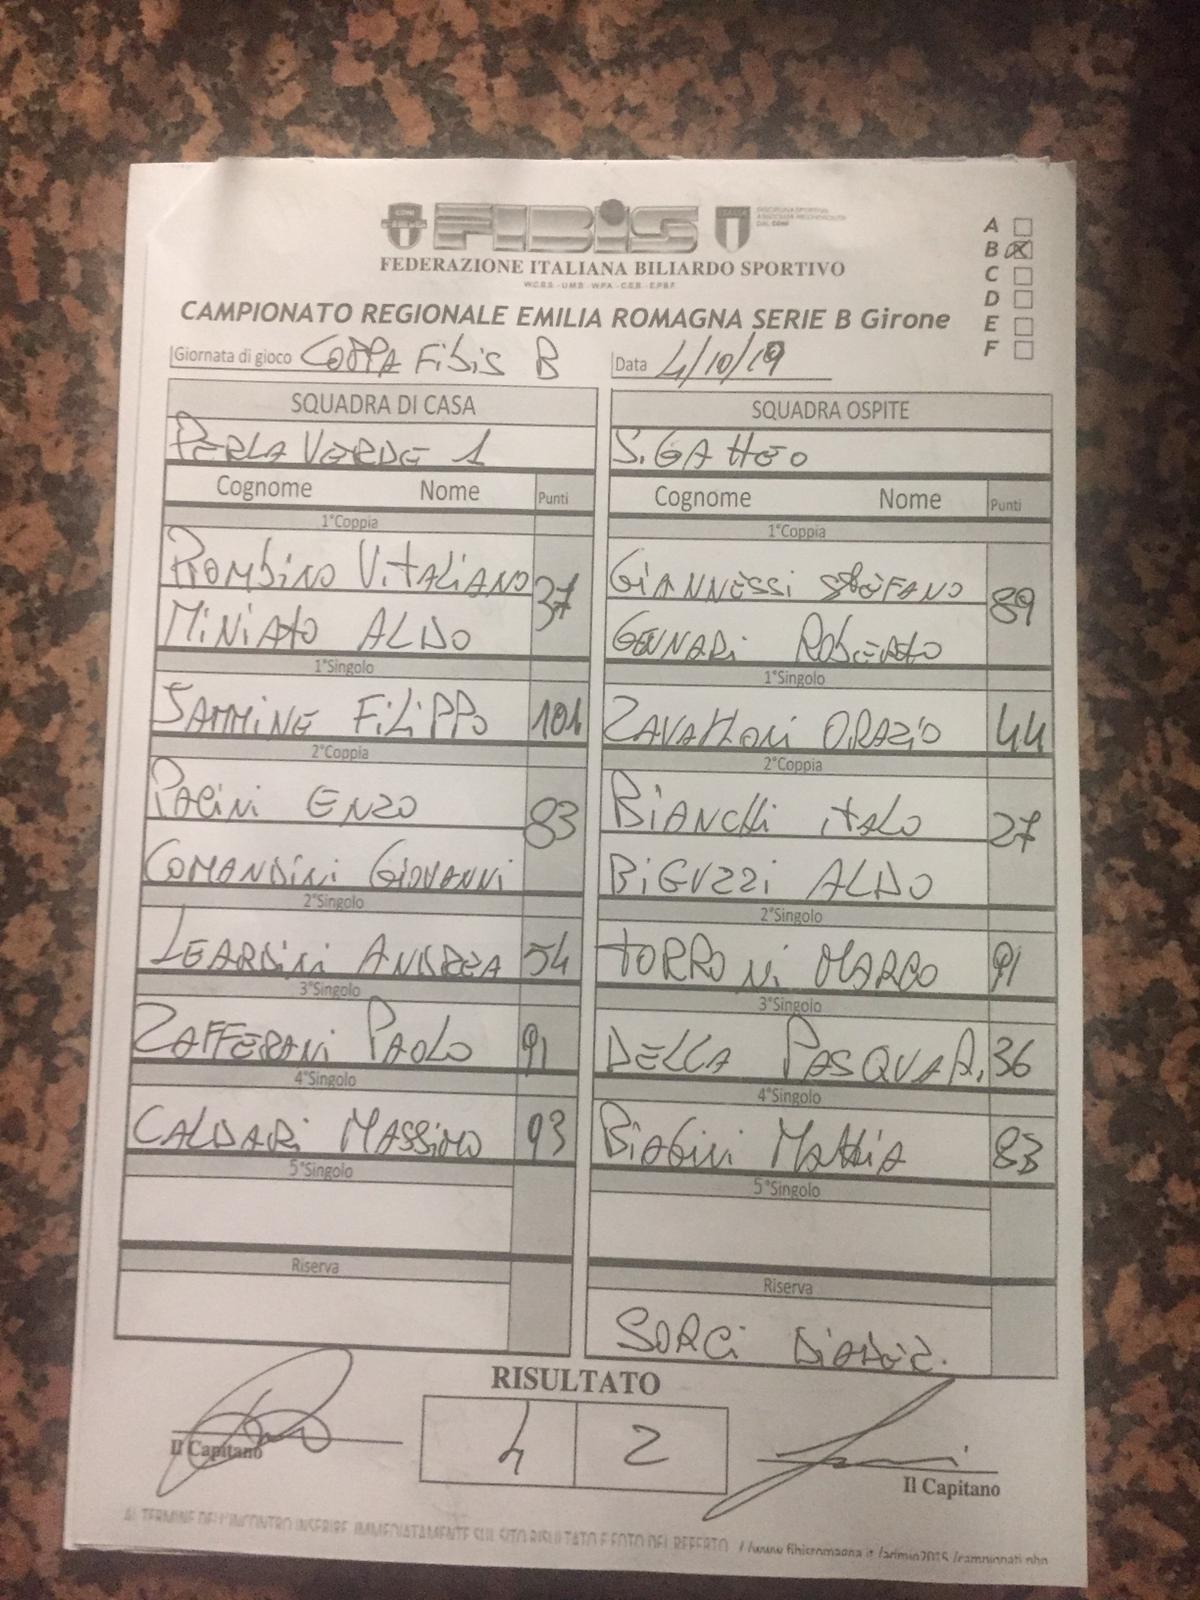 FIBiS
FEDERAZIONE ITALIANA BILIARDO SPORTIVO
W.C.B.S. - U.M.B. - W.P.A. - C.E.B. - E.P.B.F.
A
B
C
D
E
F
CAMPIONATO REGIONALE EMILIA ROMAGNA SERIE B Girone
Giornata di gioco COPPA FiBiS B Data 4/10/19
SQUADRA DI CASA SQUADRA OSPITE
PERLA VERDE 1 S.GATTEO
Cognome Nome Punti Cognome Nome Punti
1°Coppia 1°Coppia
ROMBiNO ViTALiANO 37 GiANNESSi STEFANO 89
MiNiATO ALDO GENNARi ROBERTO
1°Singolo 1°Singolo
SAMMiNE FiLiPPO 101 ZAVATTONi ORAZiO 44
2°Coppia 2°Coppia
PACiNi ENZO 83 BiANCHi iTALO 27
COMANDiNi GiOVANNi BiGUZZi ALDO
2°Singolo 2°Singolo
LEARDiNi ANDREA 54 TORRONi MARCO 91
3°Singolo 3°Singolo
ZAFFERANi PAOLO 91 DELLA PASQUA R. 36
4°Singolo 4°Singolo
CALDARi MASSiMO 93 BiAGiNi MATTiA 83
5°Singolo 5°Singolo
Riserva Riserva
SORCi
RISULTATO
4 2
Il Capitano Il Capitano
AL TERMINE DELL'INCONTRO INSERIRE IMMEDIATAMENTE SUL SITO RISULTATO E FOTO DEL REFERTO